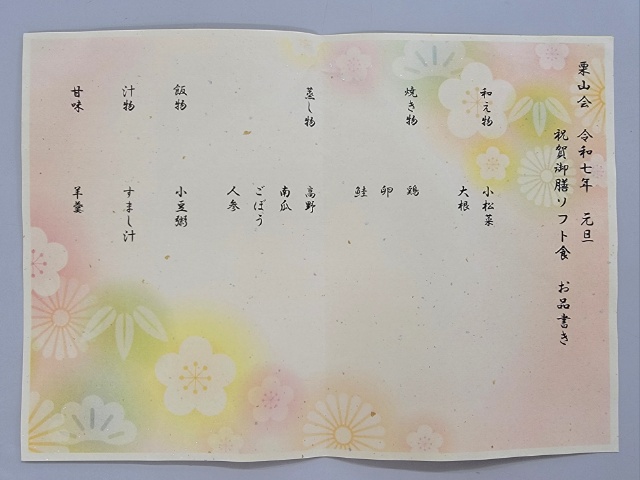 栗山会 令和七年 元旦
祝賀御膳ソフト食 お品書き
和え物 小松菜
大根
焼き物 鶏
卵
鮭
蒸し物 高野
南瓜
ごぼう
人参
飯物 小豆粥
汁物 すまし汁
甘味 羊羹